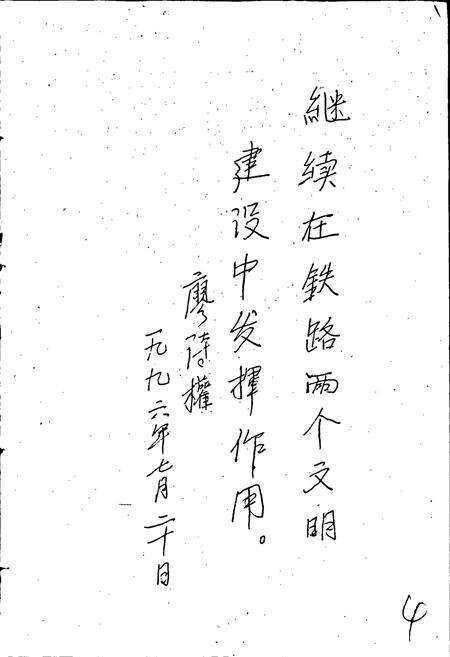 継续在鉄路两个文明
建设中发揮作用。
廖诗權
一九九六年七月二十日
4